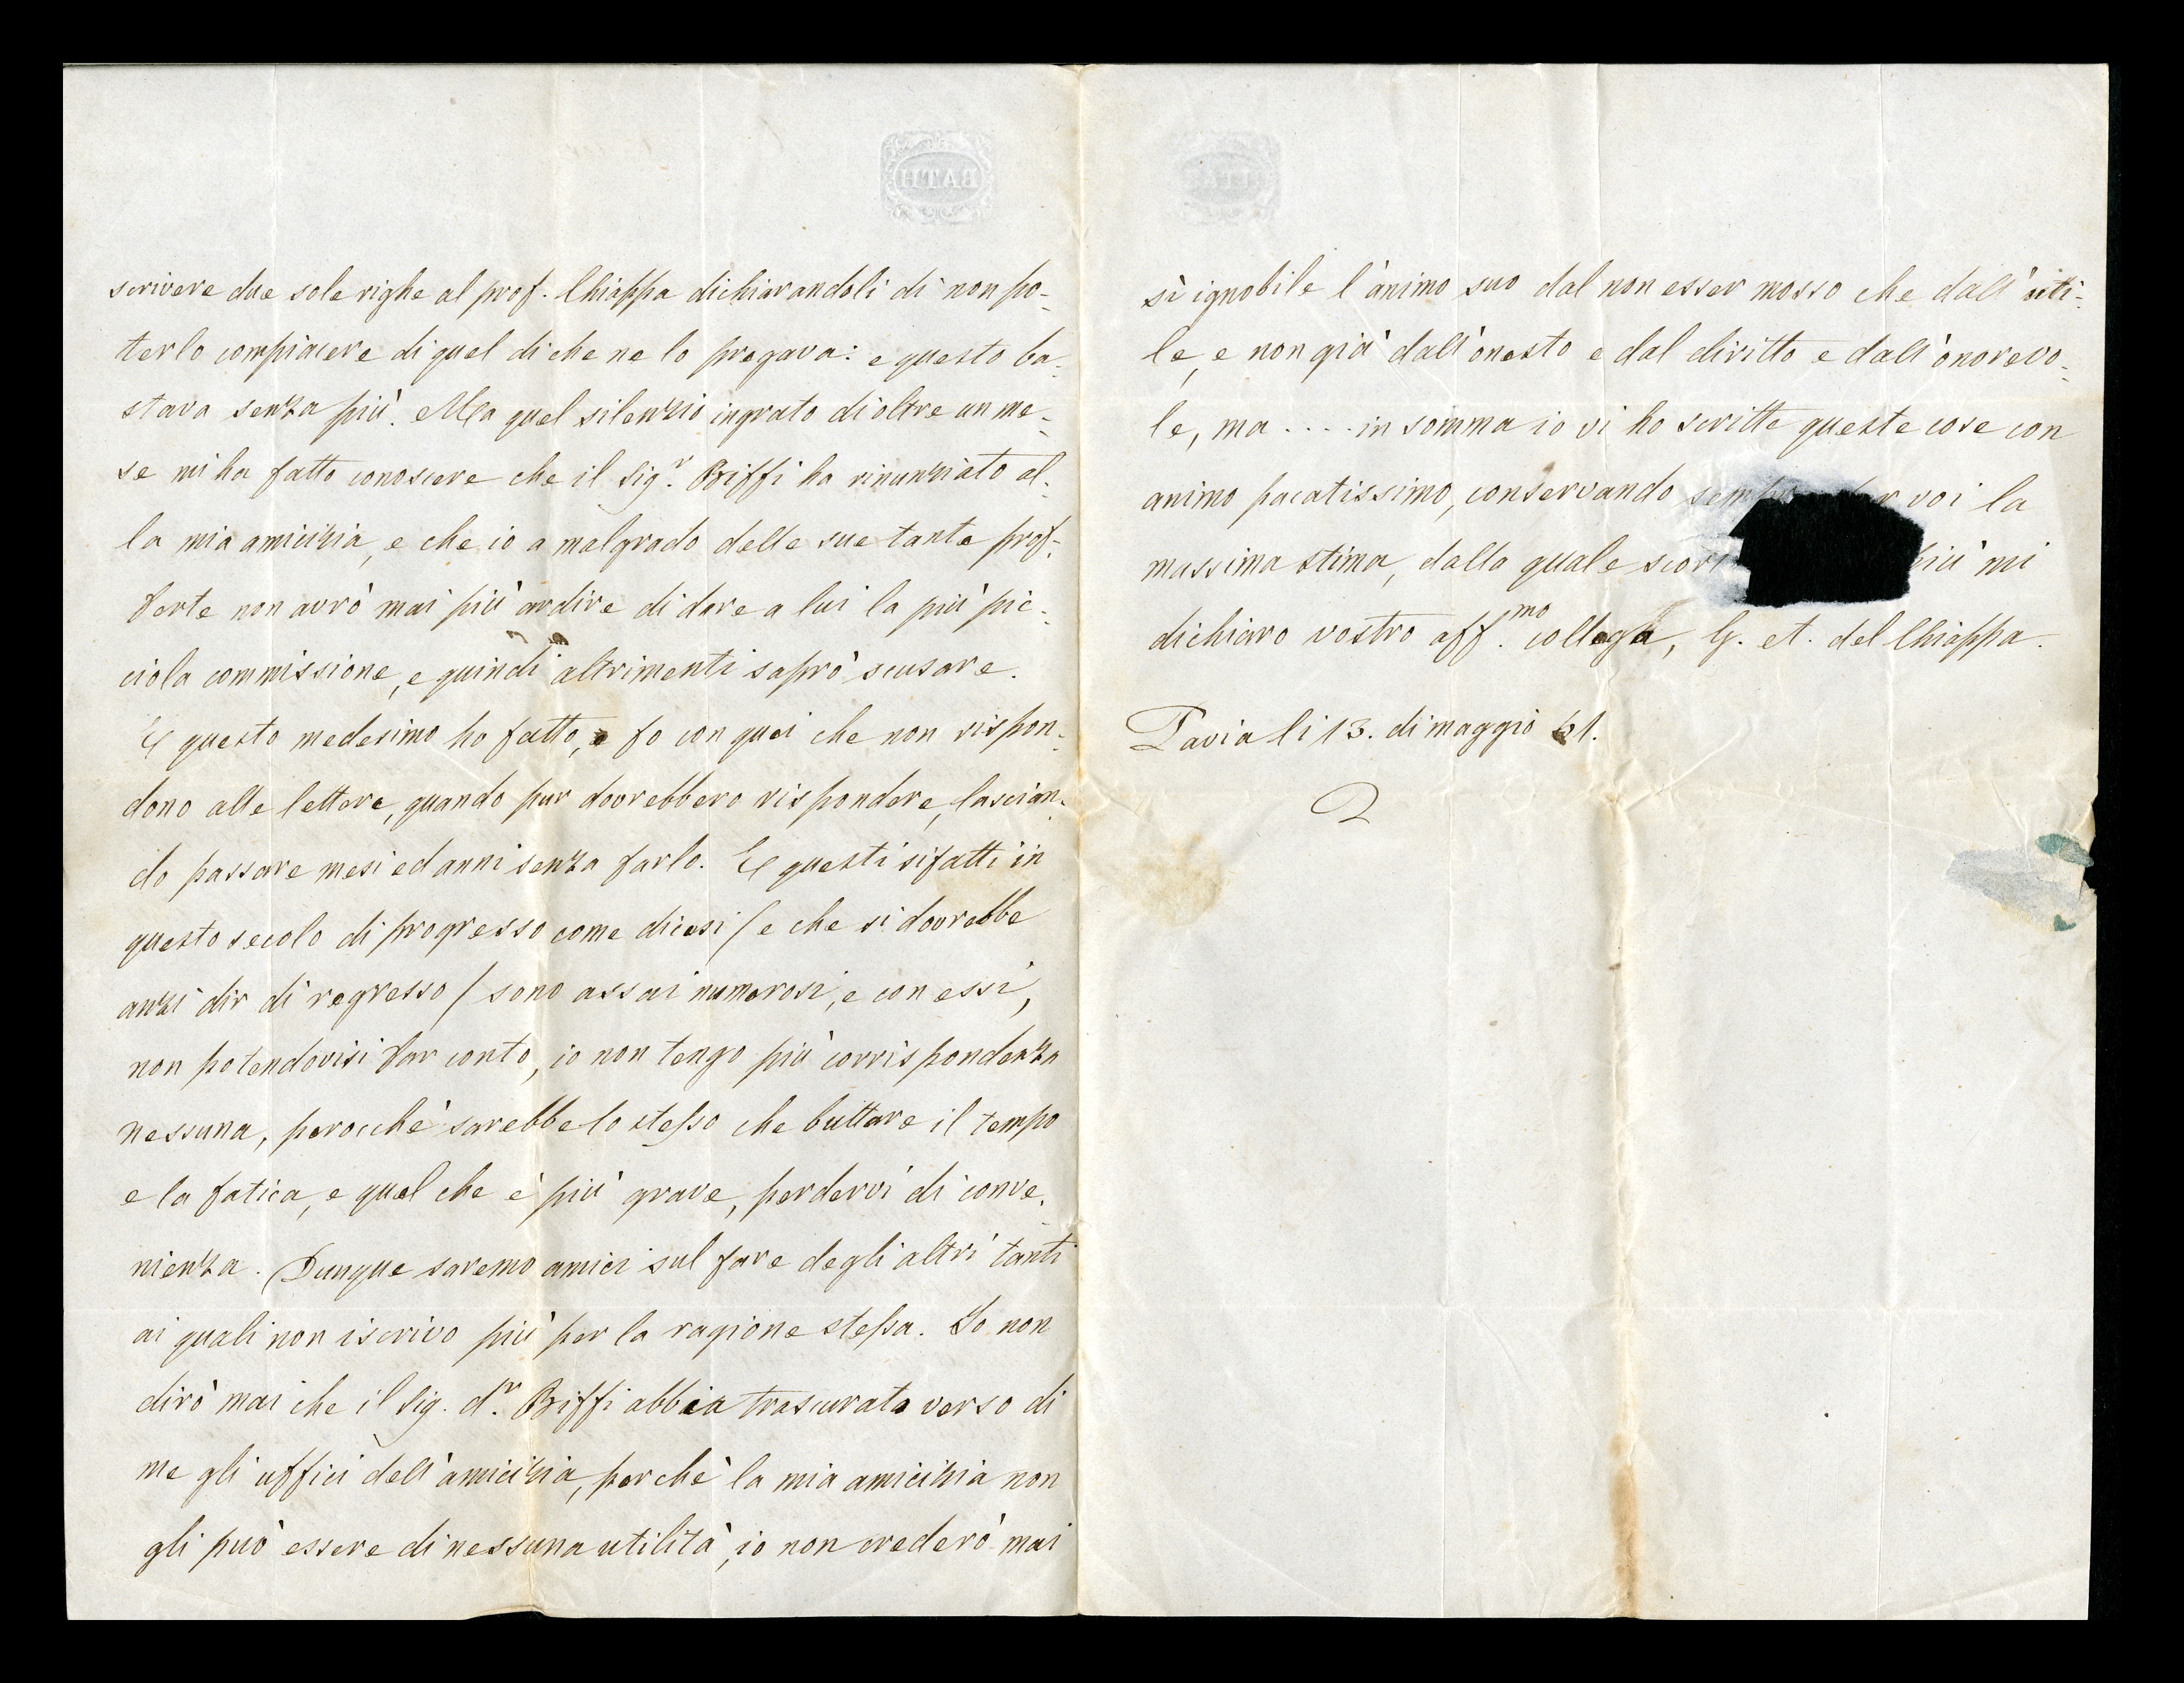 BATH
scrivere due sole righe al prof. Chiappa dichiarandoli di non po-
terlo compiacere di quel di che ne lo pregava: e questo ba-
stava senza più. Ma quel silenzio ingrato di oltre un me-
se mi ha fatto conoscere che il Sig.r Biffi ha rinunziato al-
la mia amicizia, e che io a malgrado delle sue tante prof-
ferte non avrò mai più ardire di dare a lui la più pic-
ciola commissione, e quindi altrimenti saprò scusare.
E questo medesimo ho fatto, e fo con quei che non rispon-
dono alle lettere, quando pur dovrebbero rispondere, lascian-
do passare mesi ed anni senza farlo. E questi sifatti in
questo secolo di progresso come dicesi / e che si dovrebbe
anzi dir di regresso / sono assai numerosi, e con essi,
non potendovisi far conto, io non tengo più corrispondenza
nessuna, perocchè sarebbe lo stesso che buttare il tempo
e la fatica, e quel che è più grave, perdervi di conve-
nienza. Dunque saremo amici sul fare degli altri tanti
ai quali non iscrivo più per la ragione stessa. Io non
dirò mai che il Sig. d.r Biffi abbia trascurato verso di
me gli uffici dell'amicizia, perchè la mia amicizia non
gli può essere di nessuna utilità, io non crederò mai
sì ignobile l'animo suo dal non esser mosso che dall'uti-
le, e non già dall'onesto e dal diritto e dall'onorevo-
le, ma .... in somma io vi ho scritte queste cose con
animo pacatissimo, conservando voi la
massima stima, dalla quale più mi
dichiaro vostro aff.mo collega, G. A. del Chiappa.
Pavia li 13. di maggio 61.